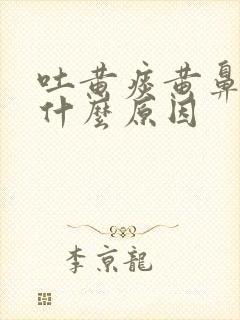 吐黄痰黄鼻
什麼原因
李京龍